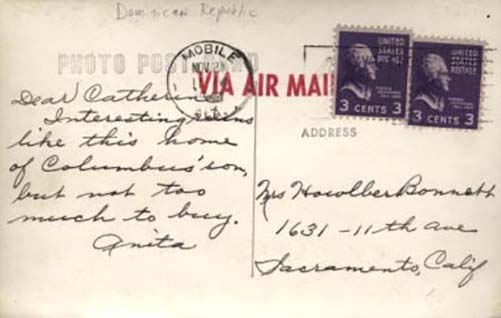 Dominican Republic
PHOTO POST CARD
MOBILE
NOV 2
ALA
VIA AIR MAIL
UNITED STATES POSTAGE
3 CENTS 3
UNITED STATES POSTAGE
3 CENTS 3
ADDRESS
Dear Catherine
Interesting ruins
like this home
of Columbus' son,
but not too
much to buy.
Anita
Mrs Bonnett
1631-11th Ave
Sacramento, Calif